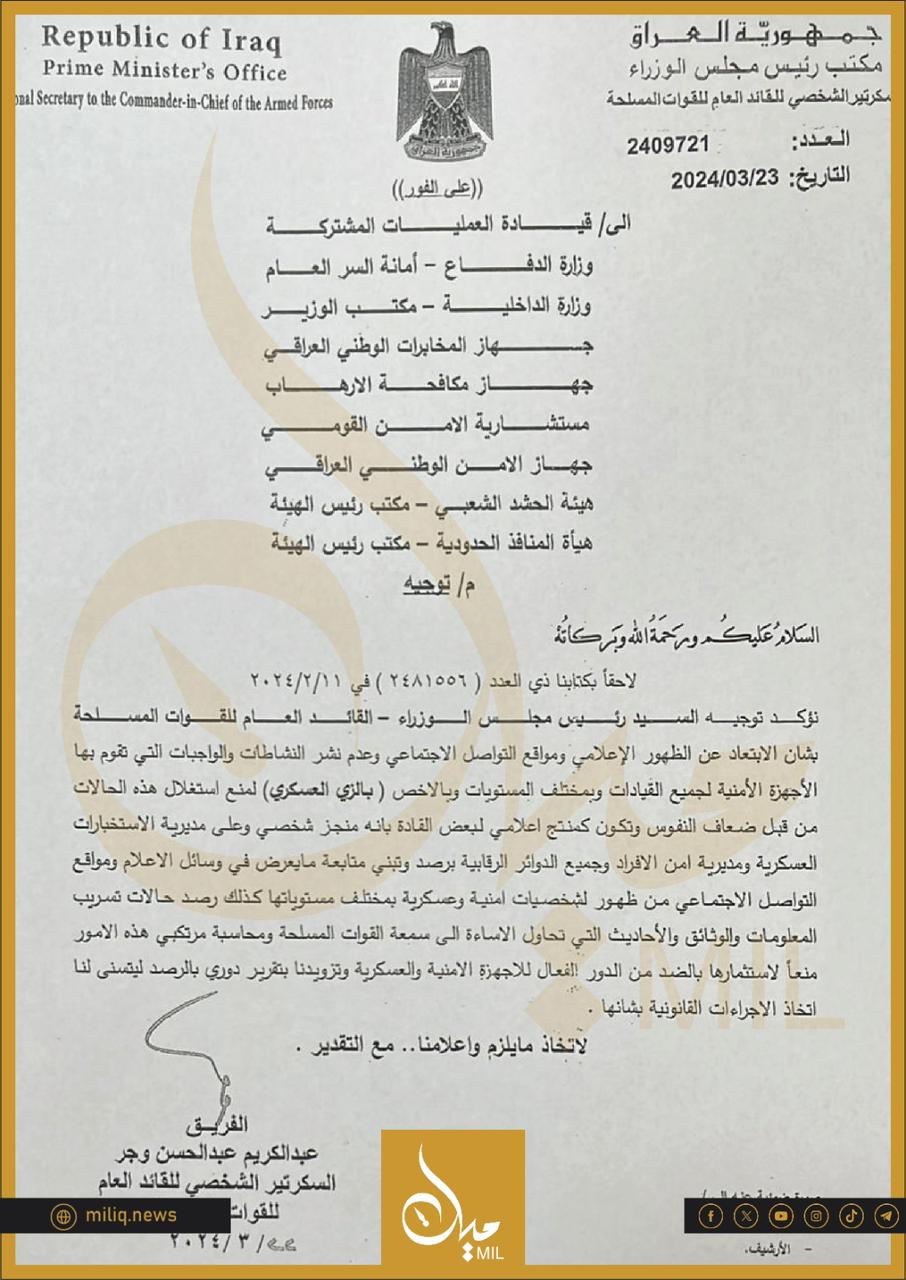 Republic of Iraq
Prime Minister's Office
onal Secretary to the Commander-in-Chief of the Armed Forces
جمهوريّة العراق
مكتب رئيس مجلس الوزراء
سكرتير الشخصي للقائد العام للقوات المسلحة
العدد: 2409721
التاريخ: 2024/03/23
((على الفور))
الى/ قيادة العمليات المشتركة
وزارة الدفاع – أمانة السر العام
وزارة الداخلية – مكتب الوزير
جهاز المخابرات الوطني العراقي
جهاز مكافحة الارهاب
مستشارية الامن القومي
جهاز الامن الوطني العراقي
هيئة الحشد الشعبي – مكتب رئيس الهيئة
هيأة المنافذ الحدودية – مكتب رئيس الهيئة
م/ توجيه
السَلامُ عَليكُم ورَحمَةُ الله وبَركاتُهُ
لاحقاً بكتابنا ذي العدد ( ٢٤٨١٥٥٦ ) في ٢٠٢٤/٢/١١
نؤكد توجيه السيد رئيس مجلس الوزراء – القائد العام للقوات المسلحة
بشان الابتعاد عن الظهور الإعلامي ومواقع التواصل الاجتماعي وعدم نشر النشاطات والواجبات التي تقوم بها
الأجهزة الأمنية لجميع القيادات وبمختلف المستويات وبالاخص ( بالزي العسكري) لمنع استغلال هذه الحالات
من قبل ضعاف النفوس وتكون كمنتج اعلامي لبعض القادة بانه منجز شخصي وعلى مديرية الاستخبارات
العسكرية ومديرية امن الافراد وجميع الدوائر الرقابية برصد وتبني متابعة مايعرض في وسائل الاعلام ومواقع
التواصل الاجتماعي من ظهور لشخصيات امنية وعسكرية بمختلف مستوياتها كذلك رصد حالات تسريب
المعلومات والوثائق والأحاديث التي تحاول الاساءة الى سمعة القوات المسلحة ومحاسبة مرتكبي هذه الامور
منعاً لاستثمارها بالضد من الدور الفعال للاجهزة الامنية والعسكرية وتزويدنا بتقرير دوري بالرصد ليتسنى لنا
اتخاذ الاجراءات القانونية بشانها .
لاتخاذ مايلزم واعلامنا.. مع التقدير .
الفريق
عبدالكريم عبدالحسن وجر
السكرتير الشخصي للقائد العام
للقوات
٢٠٢٤/٣/
- الأرشيف.
miliq.news
ميل
MIL
MIL